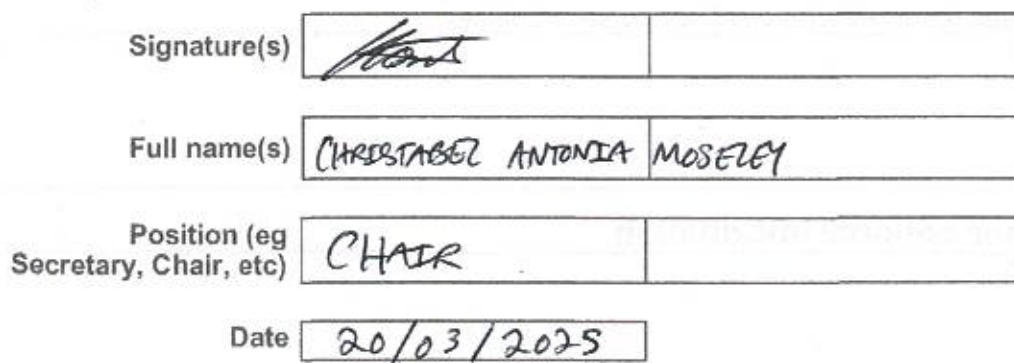 Signature(s)
Full name(s) CHRISTABEL ANTONIA MOSELEY
Position (eg
Secretary, Chair, etc) CHAIR
Date 20/03/2025